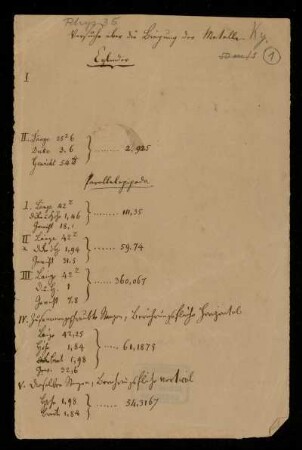 Phys 36
Versuche über die Biegung der Metalle. Ky.
1
Cylinder
I
II. Länge 23"6
Dicke 3.6 } ...... 2,925
Gewicht 54
Parallelepipeda
I. Länge 42"
1,46 } ...... 111,35
Gewicht 18,1
II Länge 42"
1,94 } ...... 59.74
Gewicht 31.5
III Länge 42"
1 } ...... 360,067
Gewicht 7.8
IV. Zusammengeschraubte Stangen, Berührungsfläche horizontal
Länge 42,25
Höhe 1,84 } ...... 61,1875
Breit 1,98
Gew. 32,6
V. Dieselben Stangen, Berührungsfläche vertical
Höhe 1,98 } ...... 54.3167
Breite 1,84